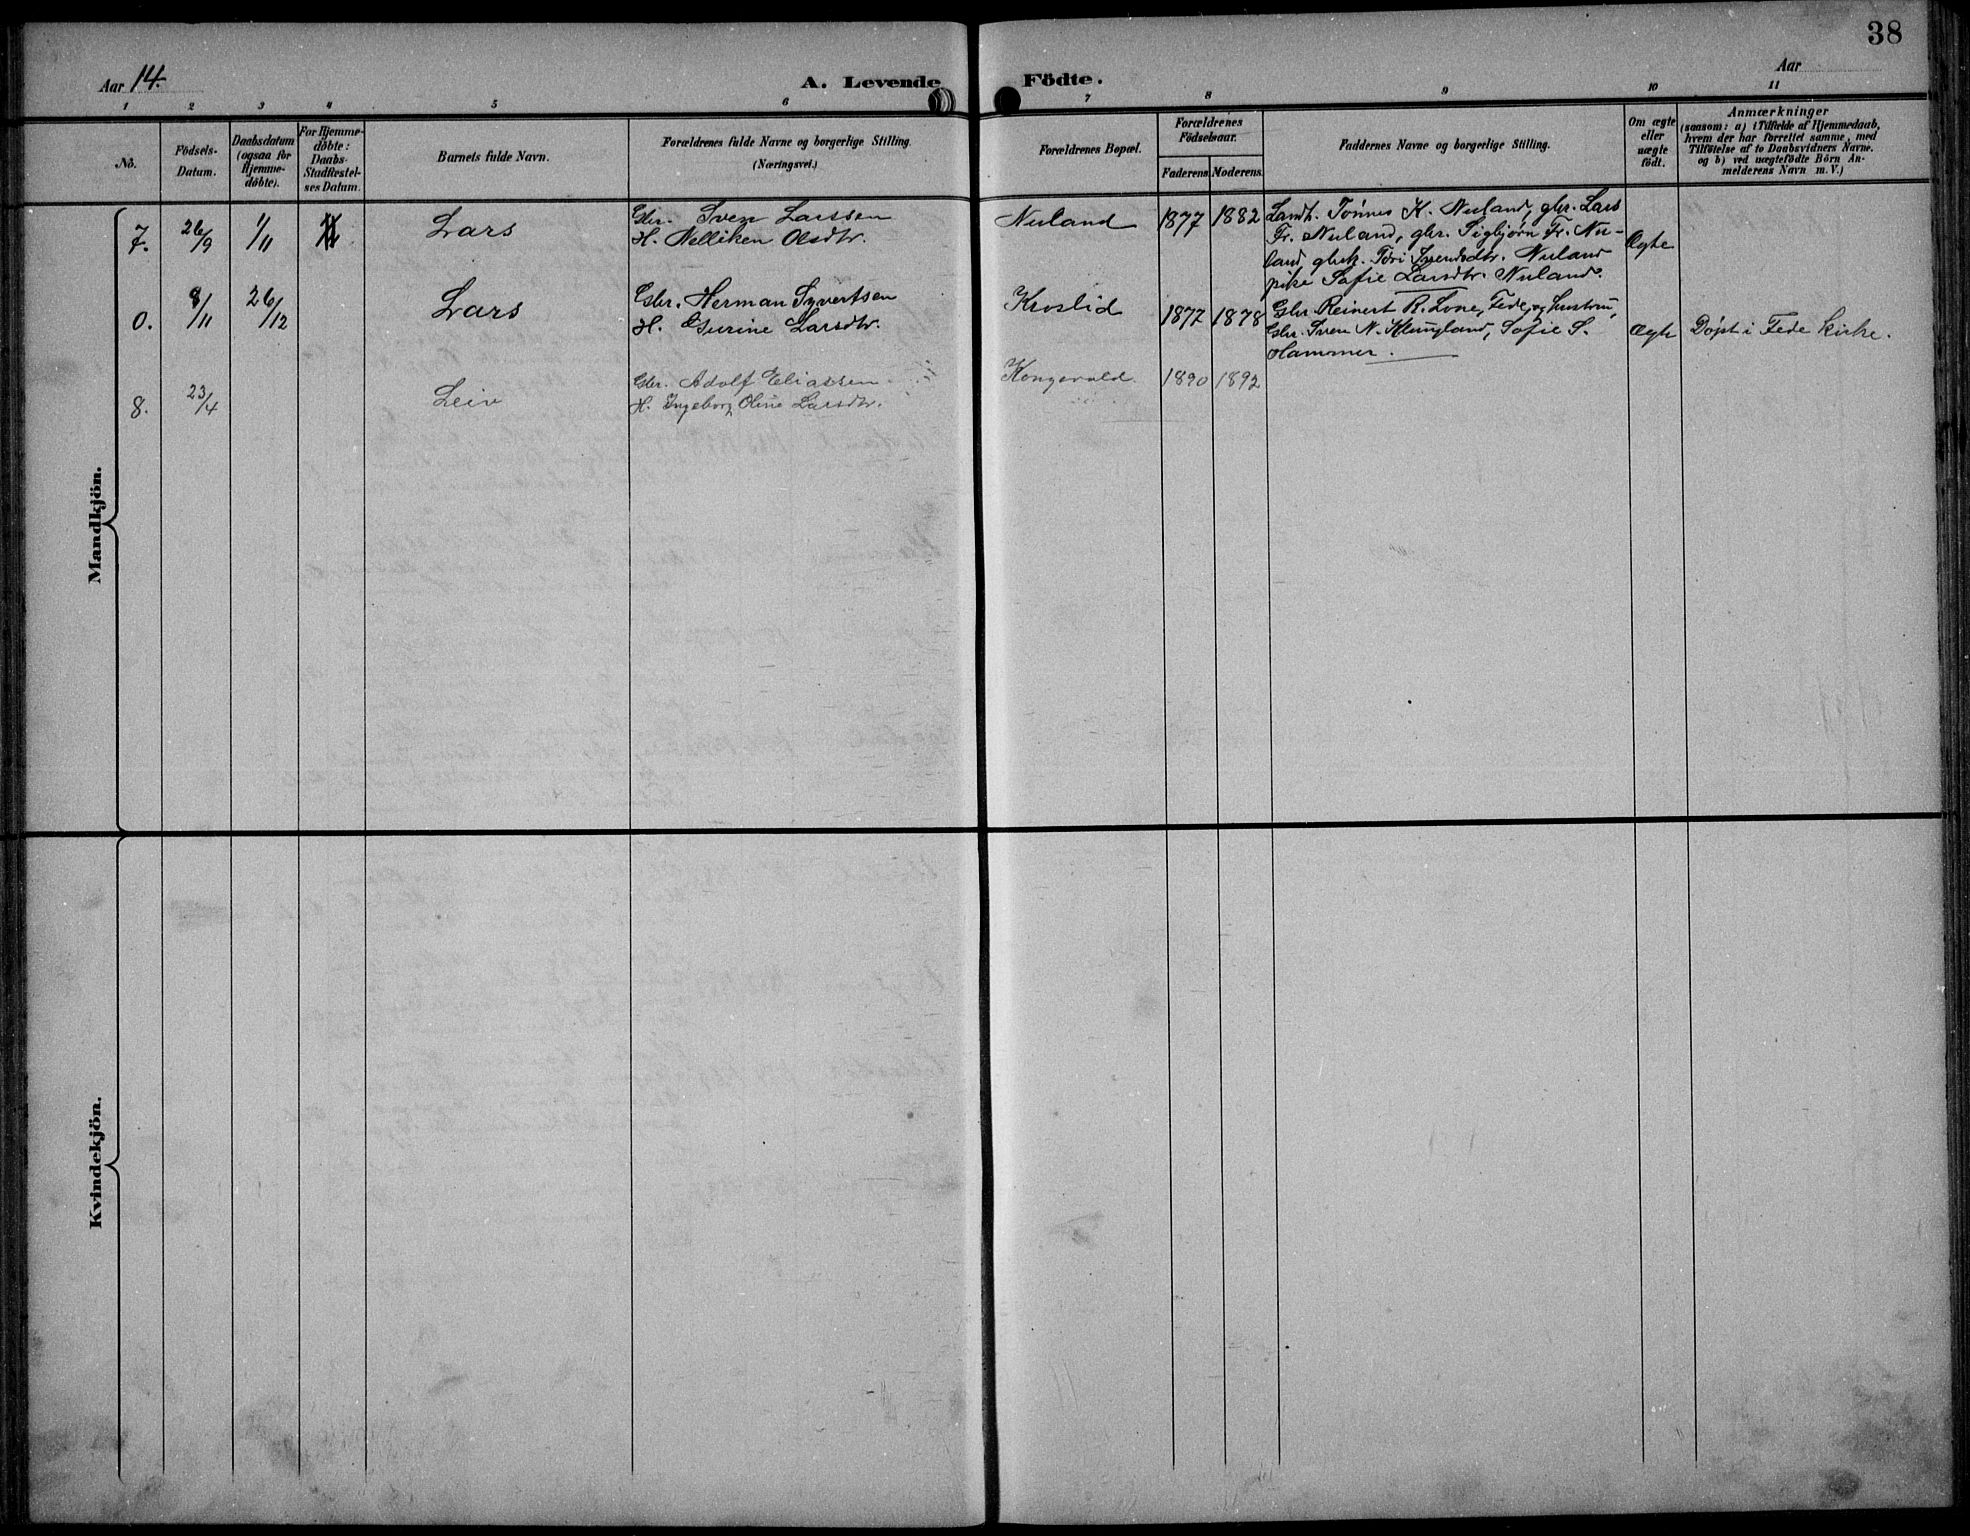 38
Aar 14.
A. Levende Födte.
Aar
1 2 3 4 5 6 7 8 9 10 11
No.
Födsels-
Datum.
Daabsdatum
(ogsaa for
Hjemme-
döbte).
For Hjemme-
döbte:
Daabs-
Stadfæstel-
ses Datum.
Barnets fulde Navn.
Forældrenes fulde Navne og borgerlige Stilling.
(Næringsvei.)
Forældrenes Bopæl.
Forældrenes
Födselsaar.
Faderens Moderens.
Faddernes Navne og borgerlige Stilling.
Om ægte
eller
uægte
födt.
Anmærkninger
(saasom: a) i Tilfælde af Hjemmedaab,
hvem der har forrettet samme, med
Tilföielse af to Daabsvidners Navne.
og b) ved uægtefödte Börn An-
melderens Navn m. V.)
Mandkjön.
7. 26/9 1/11
Lars
Gbr. Sven Larssen
H. Nelliken Olsdtr.
Nuland 1877 1882
Landh. Tønnes K. Nuland, gbr. Lars
Fr. Nuland, gbr. Sigbjørn Fr. Nu-
land gbrk. Tori Svendsdtr. Nuland
pike Sofie Larsdtr. Nuland.
Ægte
0. 8/11 26/12
Lars
Gbr. Herman Syvertsen
H. Gurine Larsdtr.
Kroslid 1877 1878
Gbr Reinert R. Lone, Fede, og hustru,
Gbr. Sven N. Klungland, Sofie S.
Hammer.
Ægte
Døpt i Fede kirke.
8. 23/4
Leiv
Gbr. Adolf Eliassen
H. Ingeborg Oline Larsdtr.
Kongevold. 1890 1892
Kvindekjön.